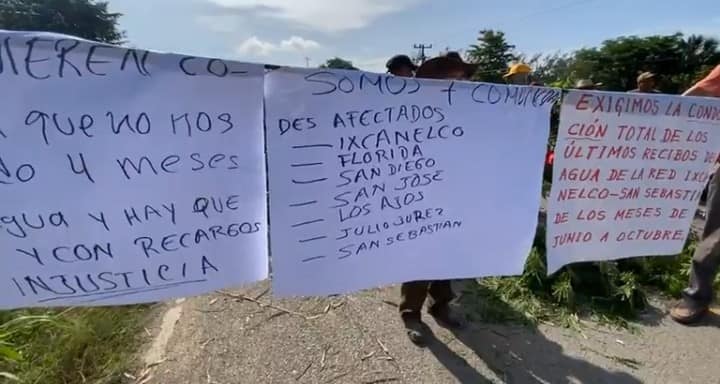 IEREN CO-
QUE NO NOS
O 4 MESES
GUA Y HAY QUE
Y CON RECARGOS
INJUSTICIA
SOMOS 7 COMUNIDA
DES AFECTADOS
— IXCANELCO
— FLORIDA
— SAN DIEGO
— SAN JOSE
— LOS AJOS
— JULIO JUREZ
— SAN SEBASTIAN
EXIGIMOS LA COND
CIÓN TOTAL DE LOS
ÚLTIMOS RECIBOS DE
AGUA DE LA RED IXCA
NELCO-SAN SEBASTI
DE LOS MESES DE
JUNIO A OCTUBRE